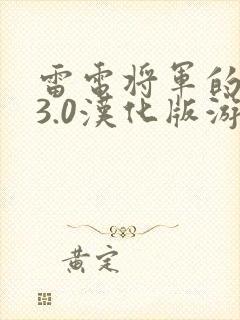 雷電将軍的
3.0漢化版游
黄定